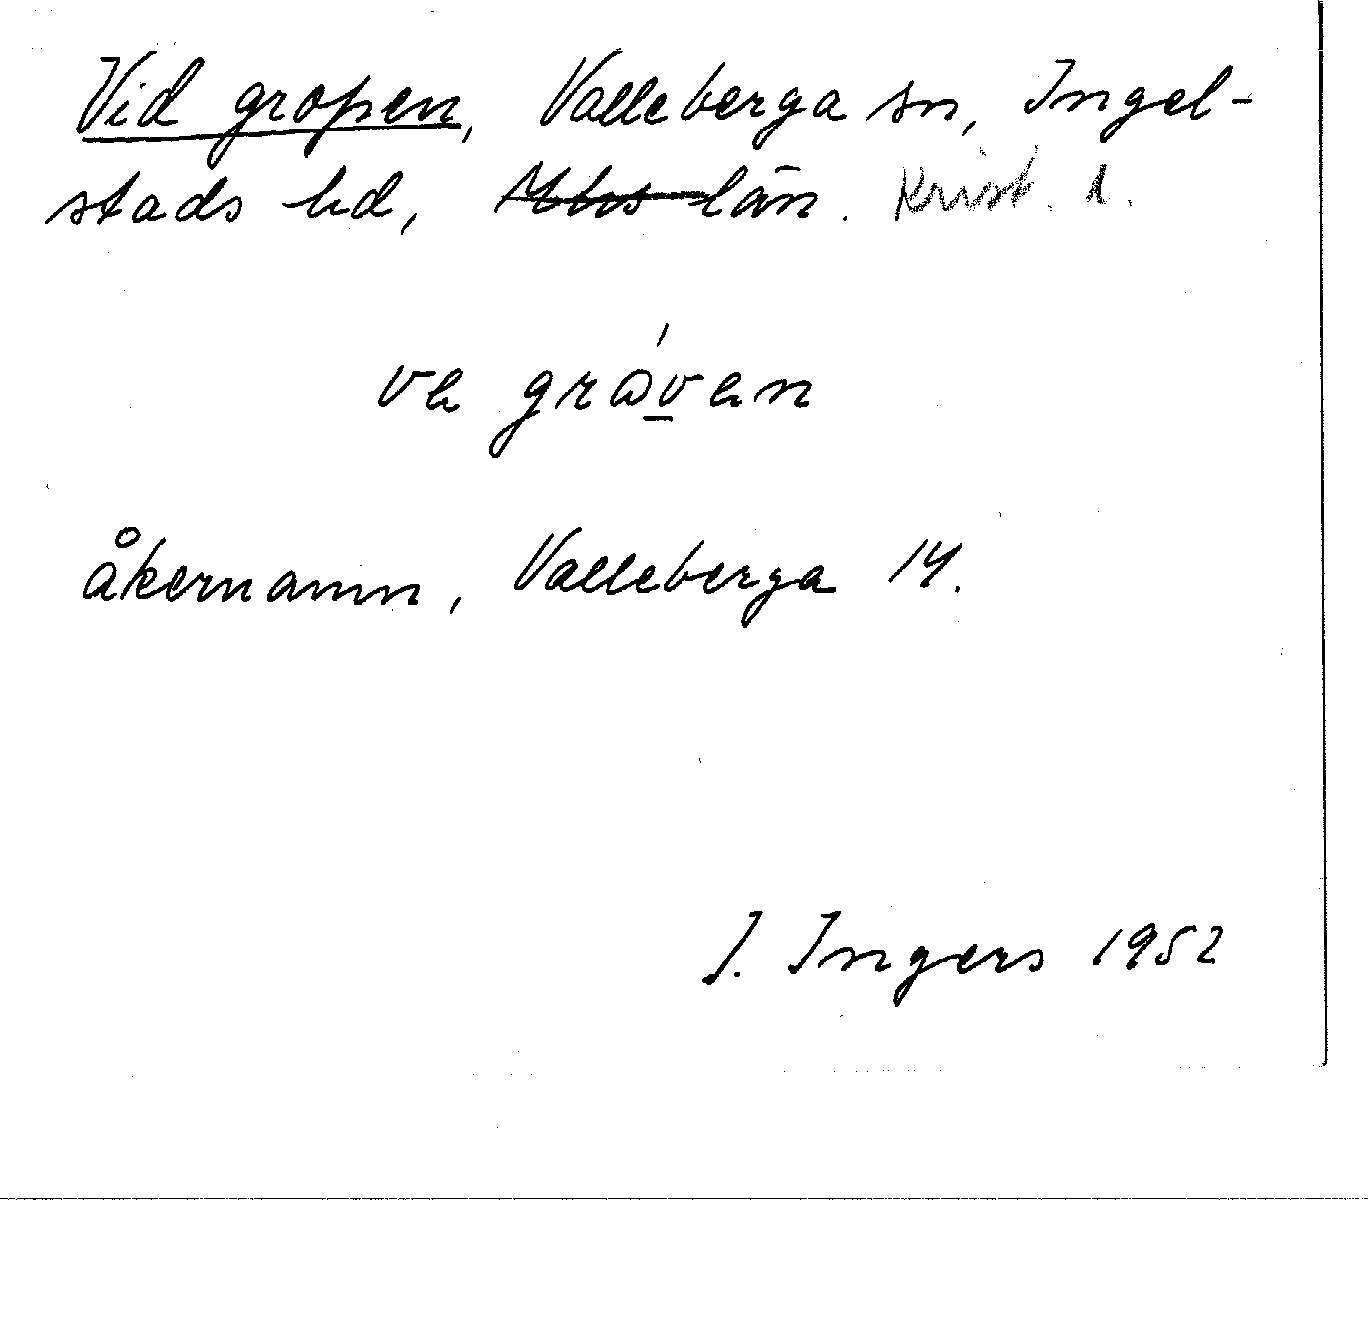 Vid gropen, Valleberga sn, Ingel-
stads hd, Mhs län. Krist. l.
va gråvan
åkernamn, Valleberga 14.
I. Ingers 1952